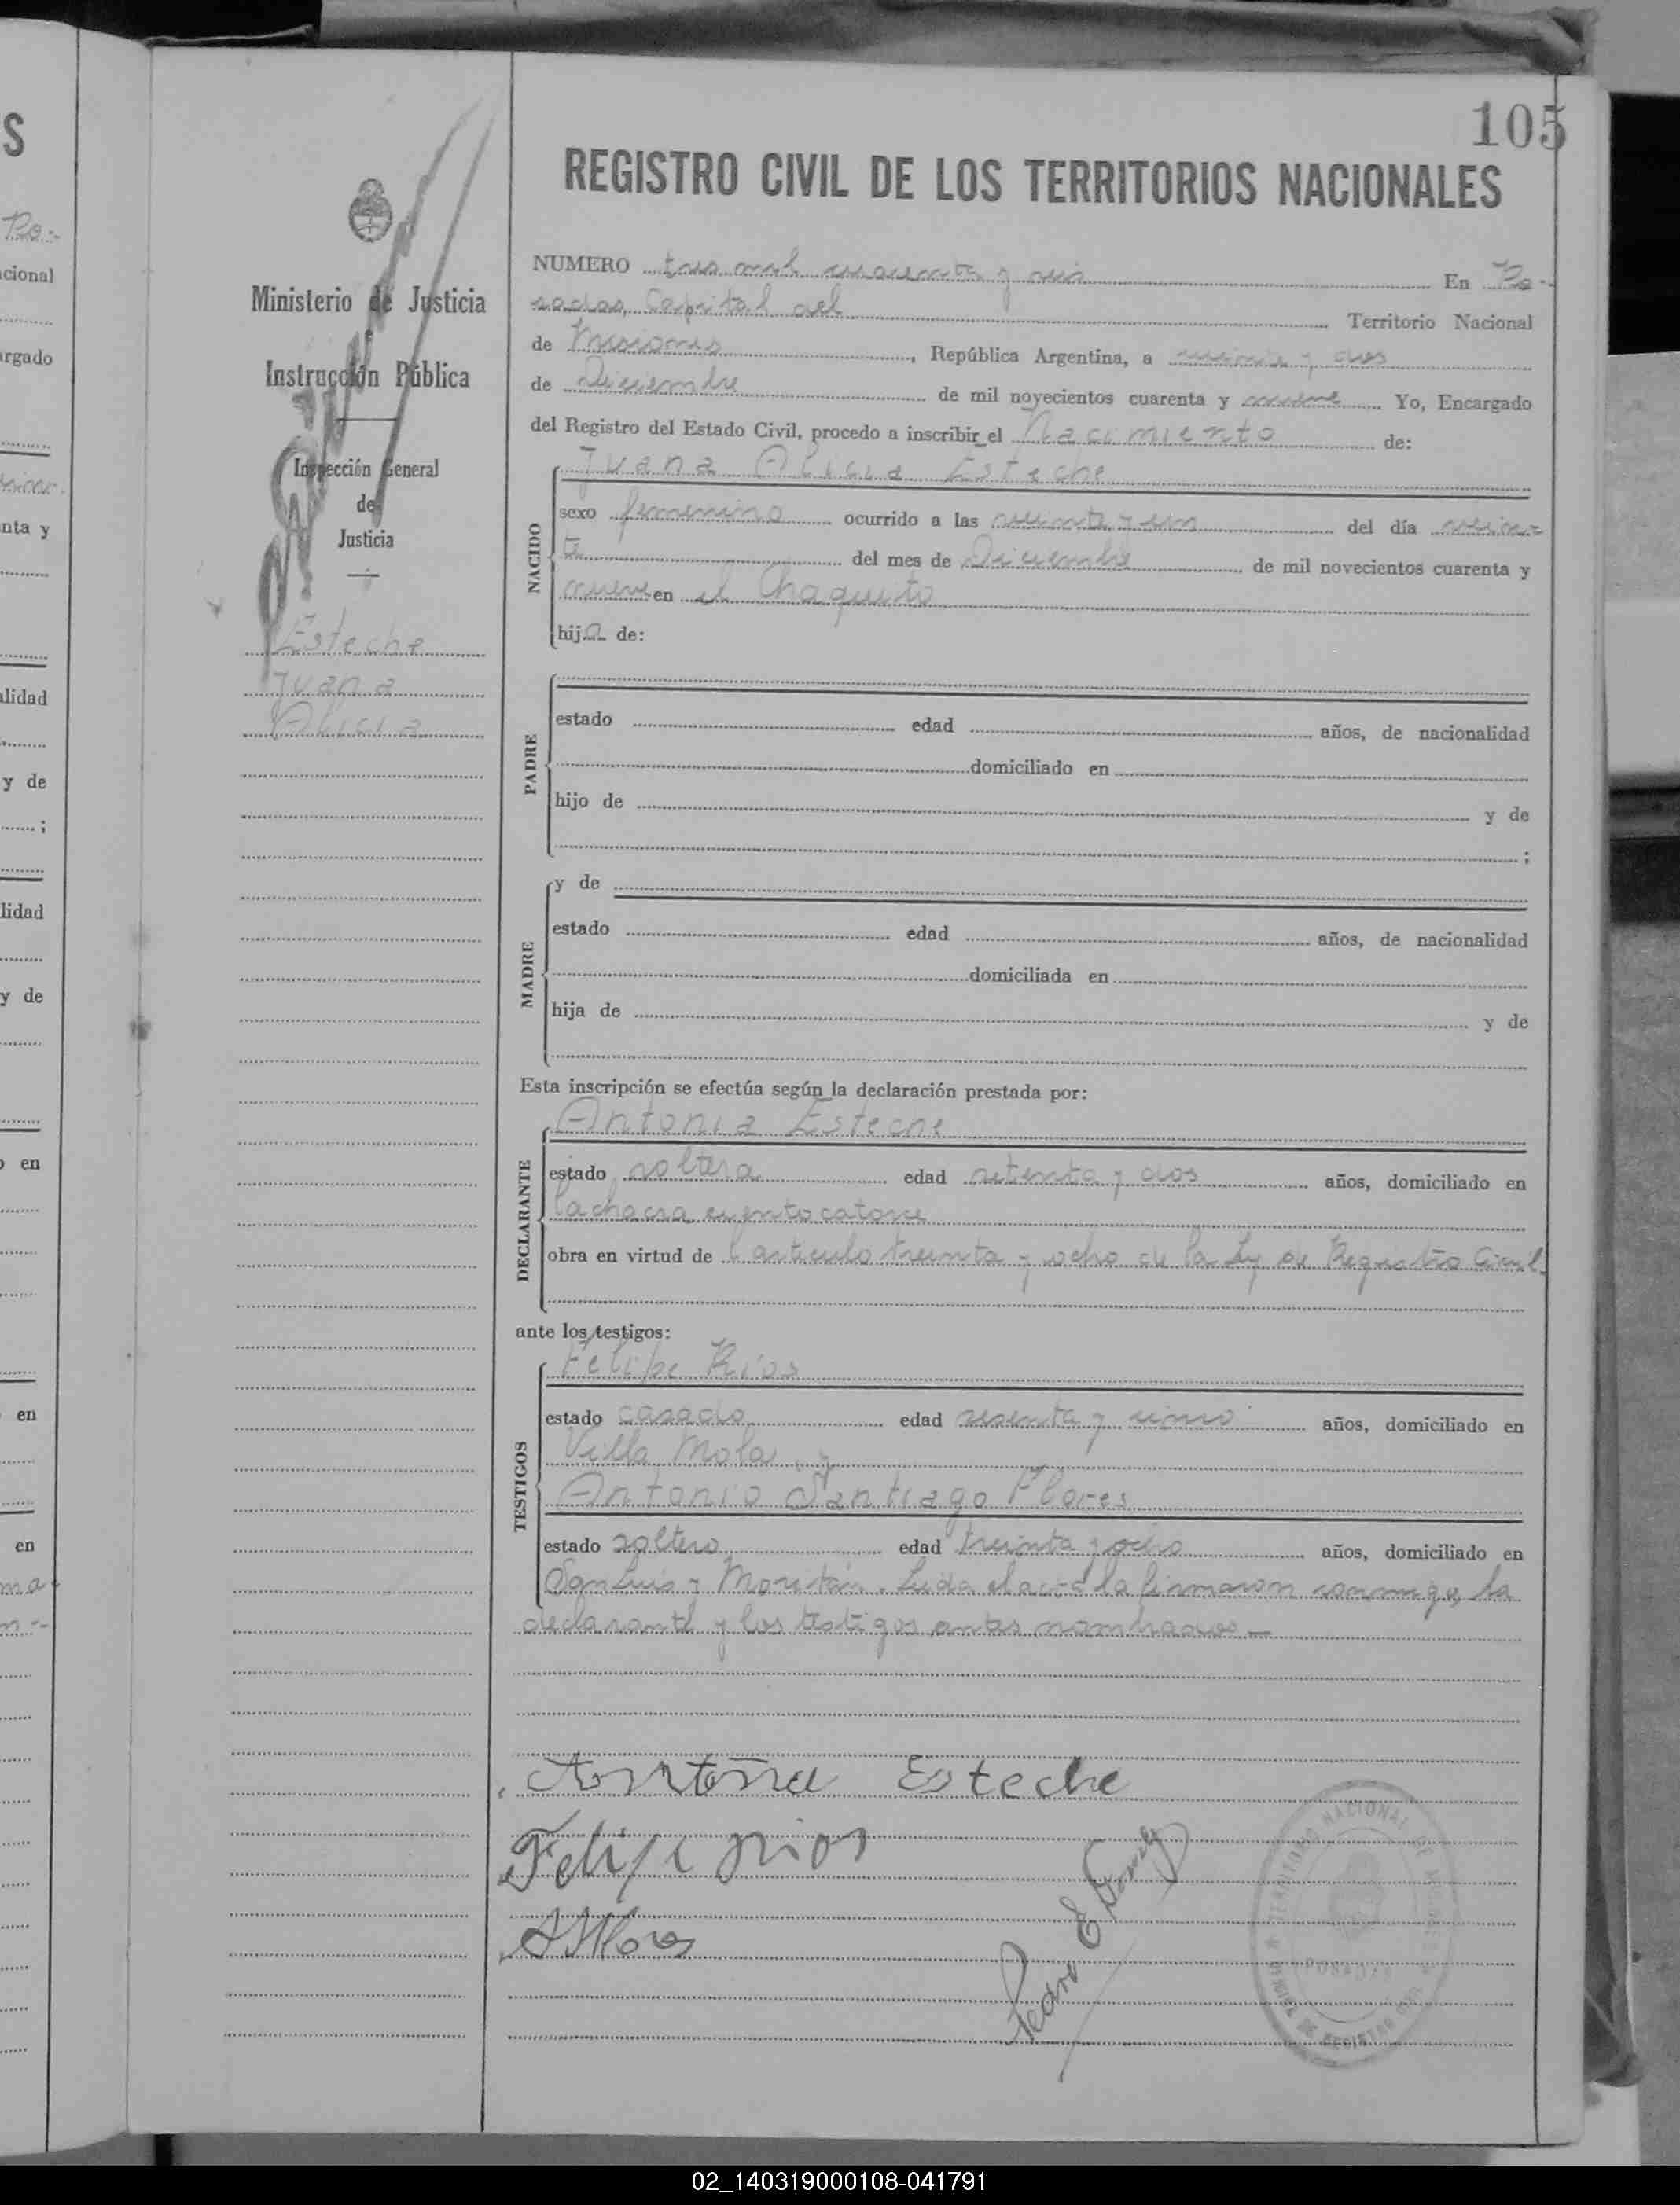 105
REGISTRO CIVIL DE LOS TERRITORIOS NACIONALES
Ministerio de Justicia
e
Instrucción Pública
Inspección General
de
Justicia
Esteche
Juana
Alicia
NUMERO tres mil cuarenta y seis En Po-
sadas, Capital del Territorio Nacional
de Misiones, República Argentina, a veinte y dos
de Diciembre de mil novecientos cuarenta y nueve Yo, Encargado
del Registro del Estado Civil, procedo a inscribir el Nacimiento de:
Juana Alicia Esteche
NACIDO
sexo femenino ocurrido a las veinte y un del día vein-
te del mes de Diciembre de mil novecientos cuarenta y
nueve en el Chaquito
hija de:
PADRE
estado edad años, de nacionalidad
domiciliado en
hijo de y de
;
MADRE
y de
estado edad años, de nacionalidad
domiciliada en
hija de y de
Esta inscripción se efectúa según la declaración prestada por:
Antonia Esteche
DECLARANTE
estado soltera edad setenta y dos años, domiciliado en
la chacra ciento catorce
obra en virtud de l artículo treinta y ocho de la Ley de Registro Civil.
ante los testigos:
Felipe Ríos
TESTIGOS
estado casado edad sesenta y cinco años, domiciliado en
Villa Mola, y
Antonio Santiago Flores
estado soltero edad treinta y ocho años, domiciliado en
San Luis y Moritán. Leída el acta la firmaron conmigo, la
declarante y los testigos antes nombrados.—
Antoña Esteche
Felipe rios
ASFlores
Pedro E
TERRITORIO NACIONAL DE MISIONES
POSADAS
02_140319000108-041791